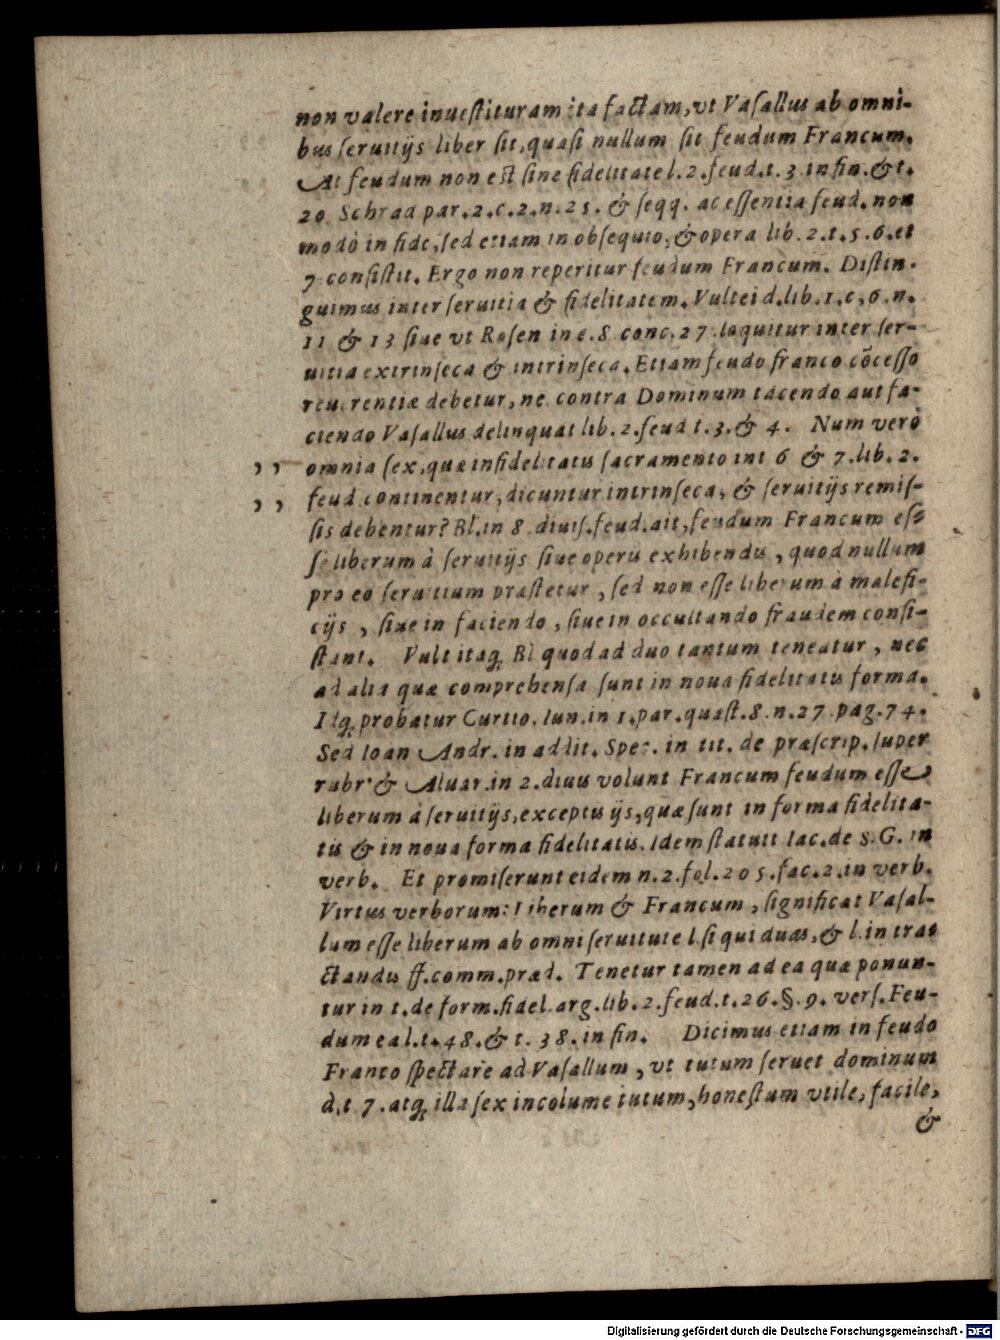 non valere inueſtituram ita factam, vt Vaſallus ab omni-
bus ſeruitijs liber ſit, quaſi nullum ſit feudum Francum.
At feudum non eſt ſine fidelitate l. 2. feud. t. 3 in fin. & t.
20 Schrad par. 2. c. 2. n. 25. & ſeqq. ac eſſentia feud. non
modò in fide, ſed etiam in obſequio, & opera lib. 2. t. 5. 6. et
7 conſiſtit. Ergo non reperitur feudum Francum. Diſtin-
guimus inter ſeruitia & fidelitatem. Vultei d. lib. 1. c, 6. n.
11 & 13 ſiue vt Roſen in c. 8 conc. 27 loquitur inter ſer-
uitia extrinſeca & intrinſeca. Etiam feudo franco cōceſſo
reuerentiæ debetur, ne contra Dominum tacendo aut fa-
ciendo Vaſallus delinquat lib. 2. feud t. 3. & 4. Num verò
, , omnia ſex, quæ in fidelitatis ſacramento int 6 & 7. lib. 2.
, , feud continentur, dicuntur intrinſeca, & ſeruitijs remiſ-
ſis debentur? Bl. in 8 diuiſ. feud. ait, feudum Francum eſ-
ſe liberum à ſeruitijs ſiue operis exhibendis, quod nullum
pro eo ſeruitium præſtetur, ſed non eſſe liberum à malefi-
cijs, ſiue in faciendo, ſiue in occultando fraudem conſi-
ſtant. Vult itaq; Bl quod ad duo tantum teneatur, nec
ad alia quæ comprehenſa ſunt in noua fidelitatis forma.
Idq; probatur Curtio. Iun. in 1. par. quæſt. 8 n. 27 pag. 74.
Sed Ioan Andr. in addit. Spec. in tit. de præſcrip. ſuper
rubr· & Aluar. in 2. diuis volunt Francum feudum eſſe
liberum à ſeruitijs, exceptis ijs, quæ ſunt in forma fidelita-
tis & in noua forma fidelitatis. Idem ſtatuit Iac. de S. G. in
verb. Et promiſerunt eidem n. 2. fol. 205. fac. 2. in verb.
Virtus verborum: Liberum & Francum, ſignificat Vaſal-
lum eſſe liberum ab omni ſeruitute l. ſi qui duas, & l. in tra-
ctandis ff. comm. præd. Tenetur tamen ad ea quæ ponun-
tur in t. de form. fidel arg. lib. 2. feud. t. 26. §. 9. verſ. Feu-
dum ea l. t. 48. & t. 38. in fin. Dicimus etiam in feudo
Franco ſpectare ad Vaſallum, vt tutum ſeruet dominum
d. t 7. atq; illa ſex incolume tutum, honeſtum vtile, facile,
&
Digitalisierung gefördert durch die Deutsche Forschungsgemeinschaft - DFG